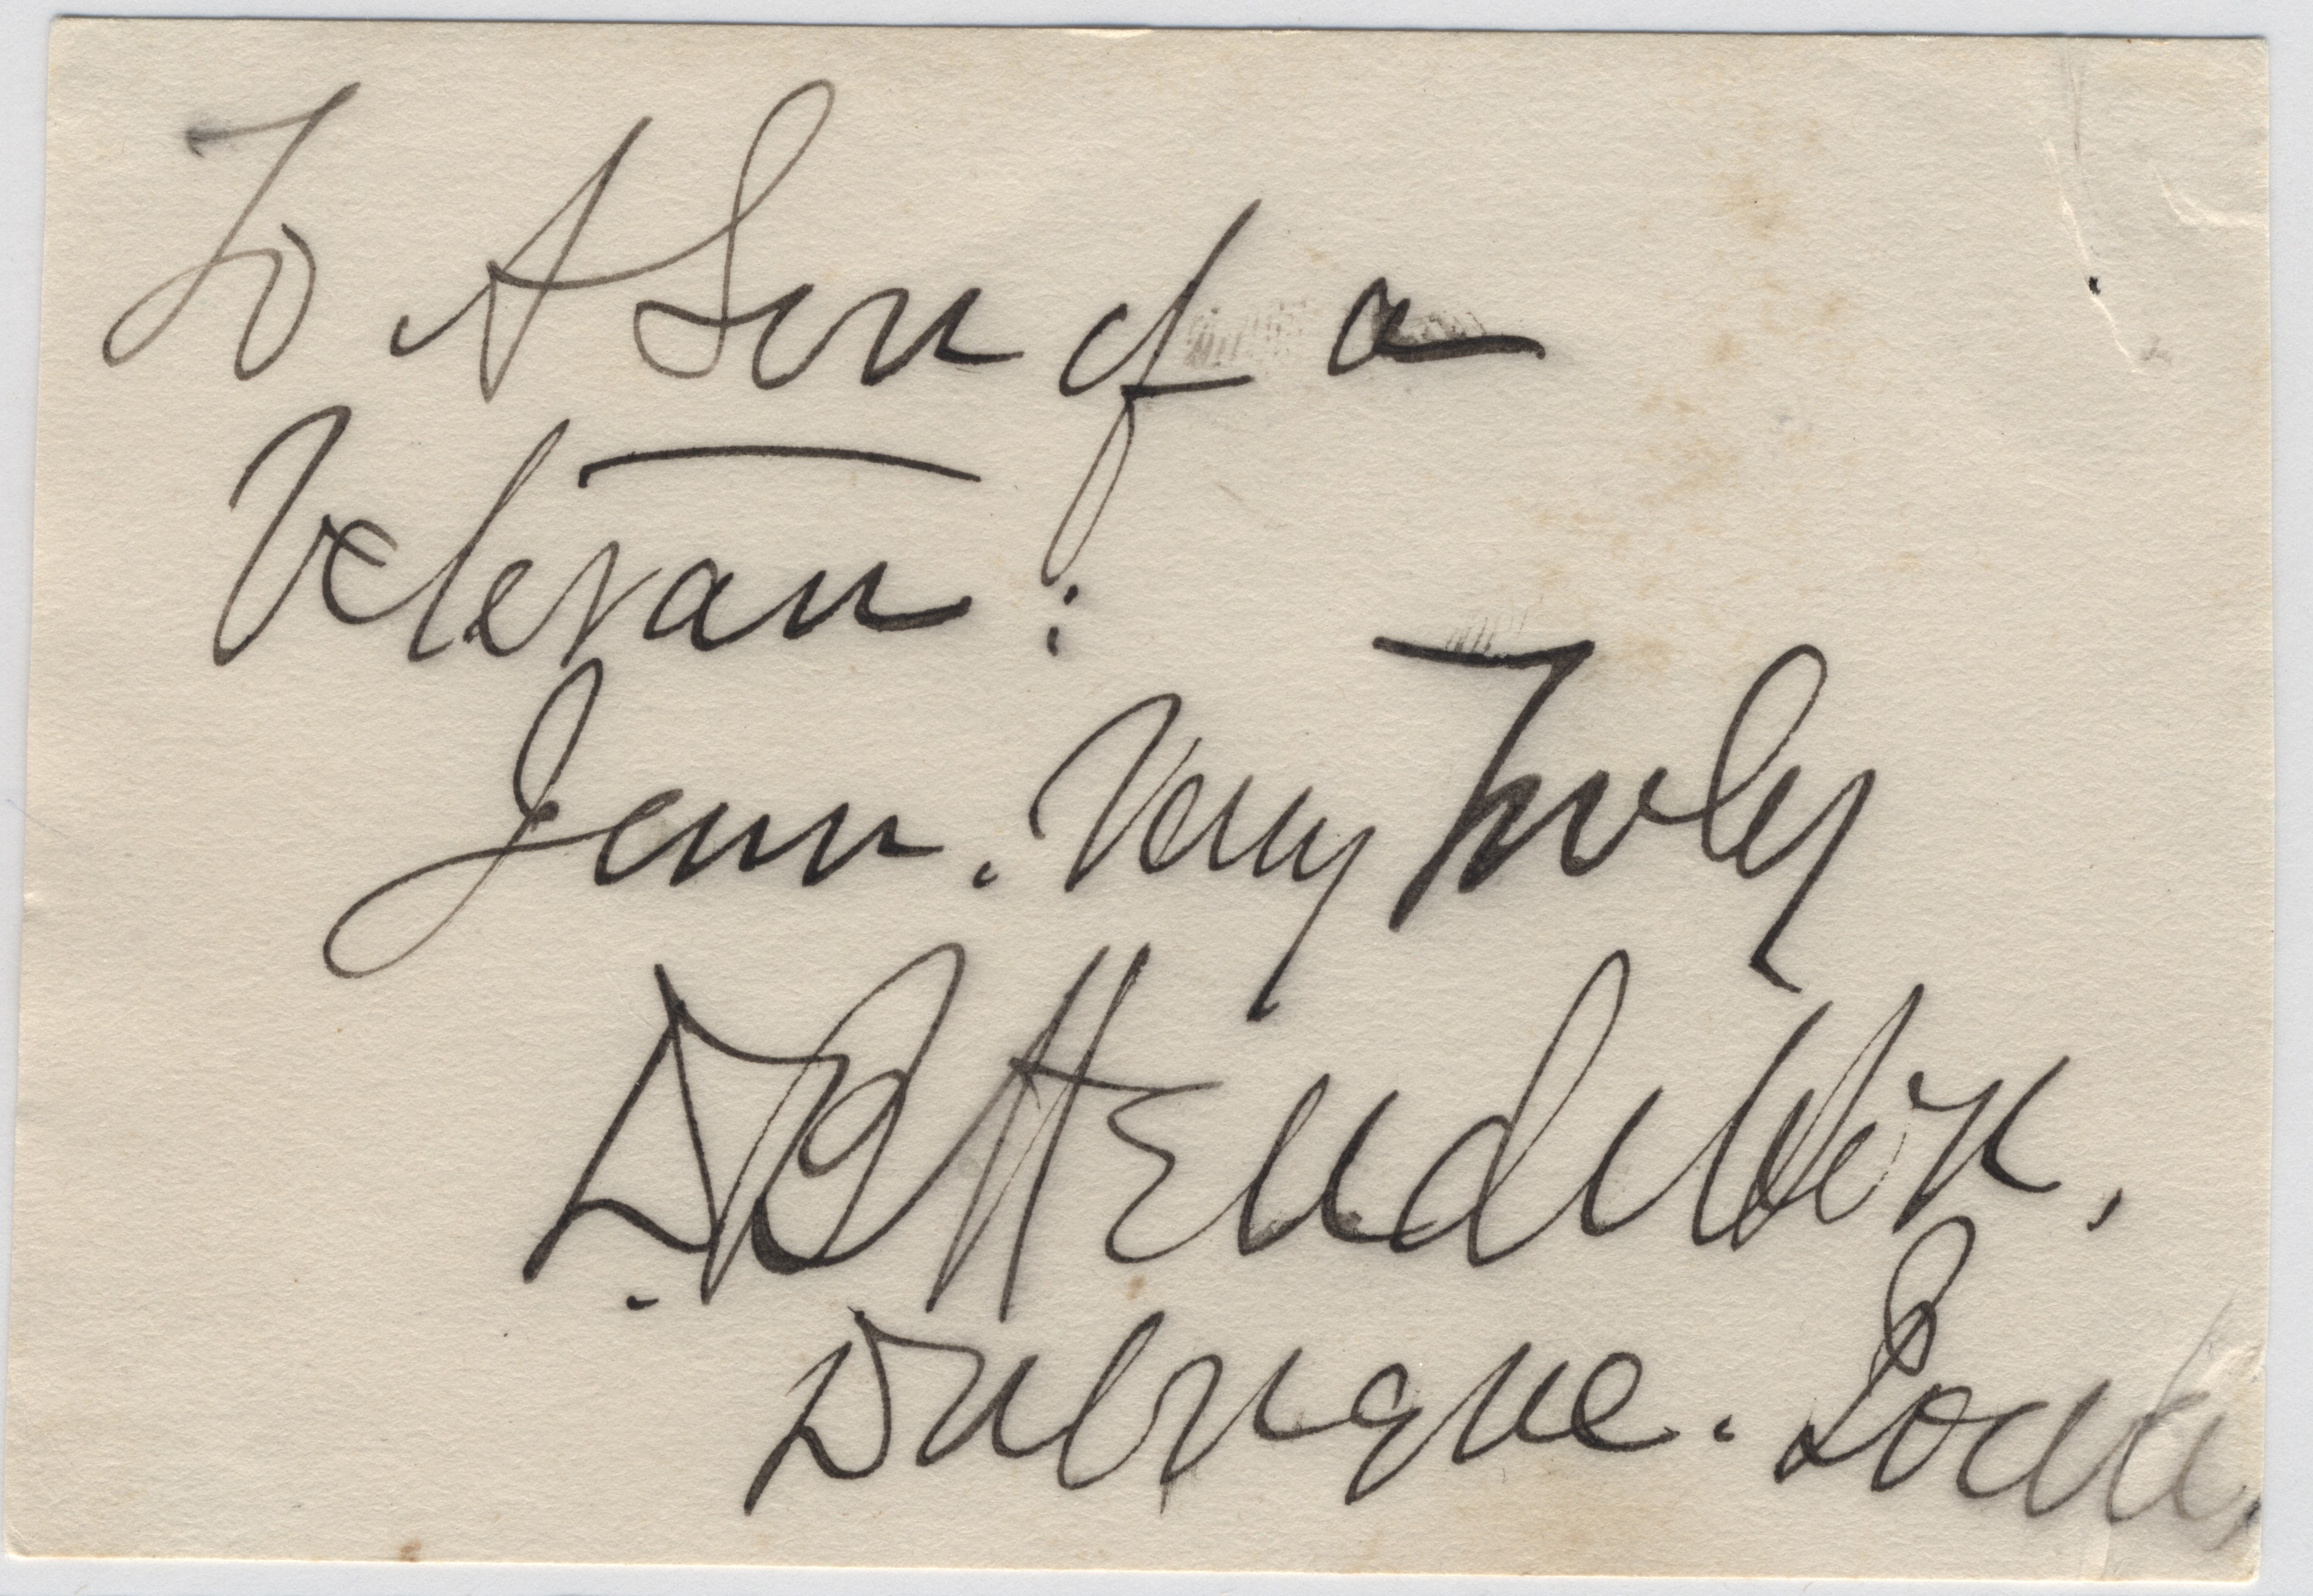 To A Son of a
Veteran:
Very Truly
Dubuque. Iowa.